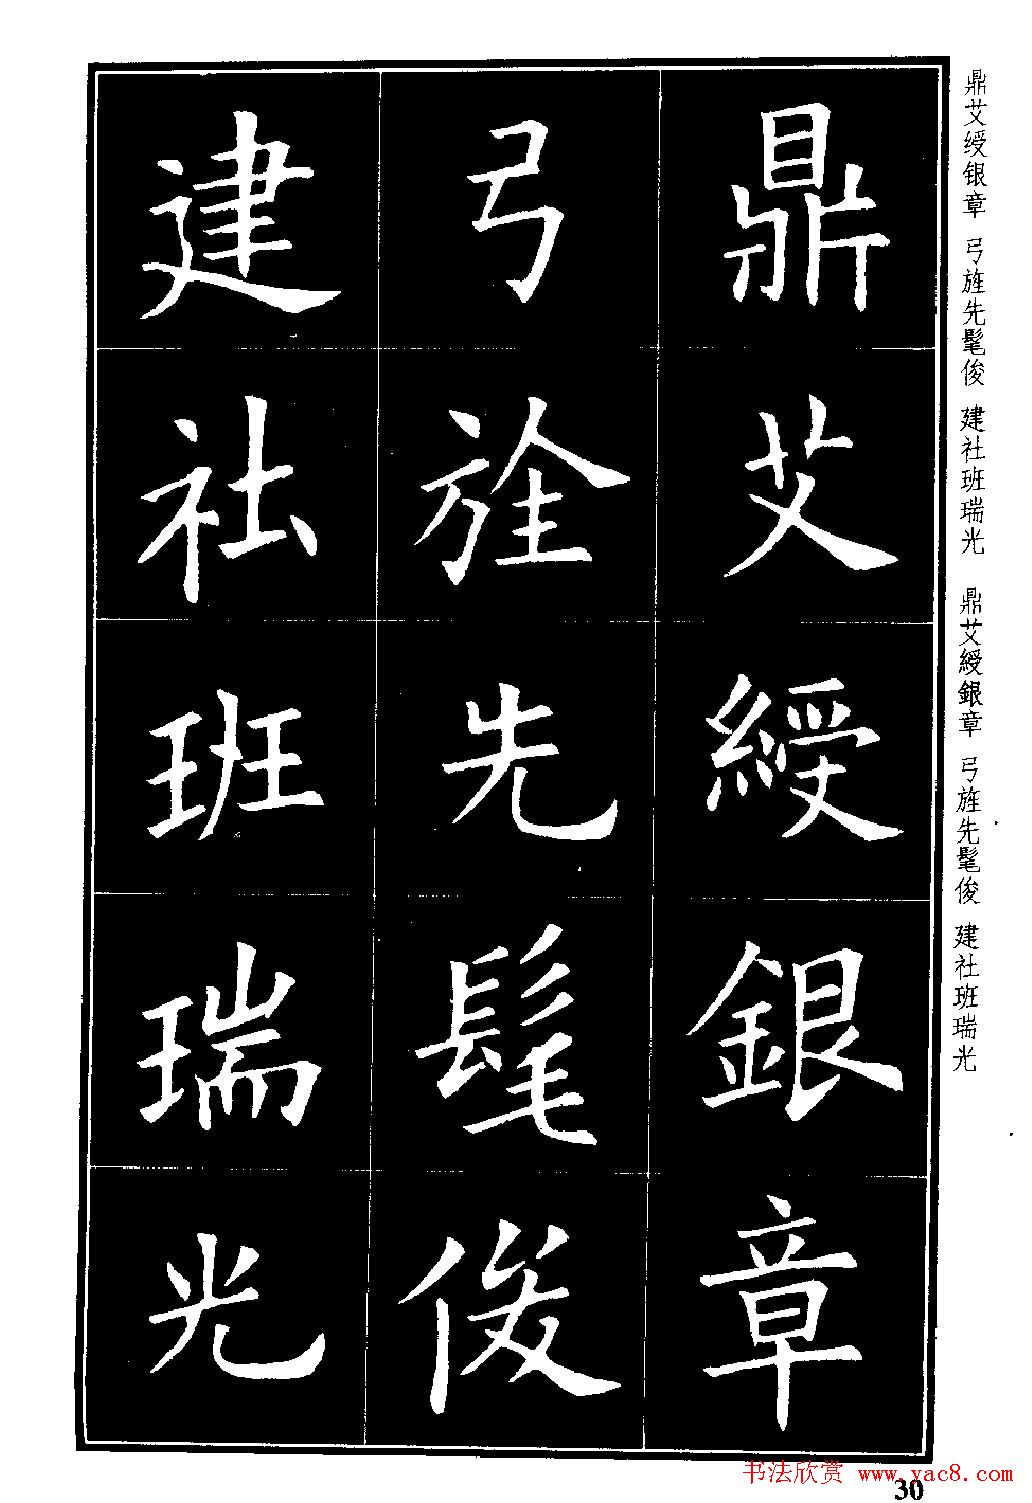 鼎艾绶银章 弓旌先髦俊 建社班瑞光 鼎艾綬銀章 弓旌先髦俊 建社班瑞光
鼎艾綬銀章
弓旌先髦俊
建社班瑞光
书法欣赏 www.yac8.com
30